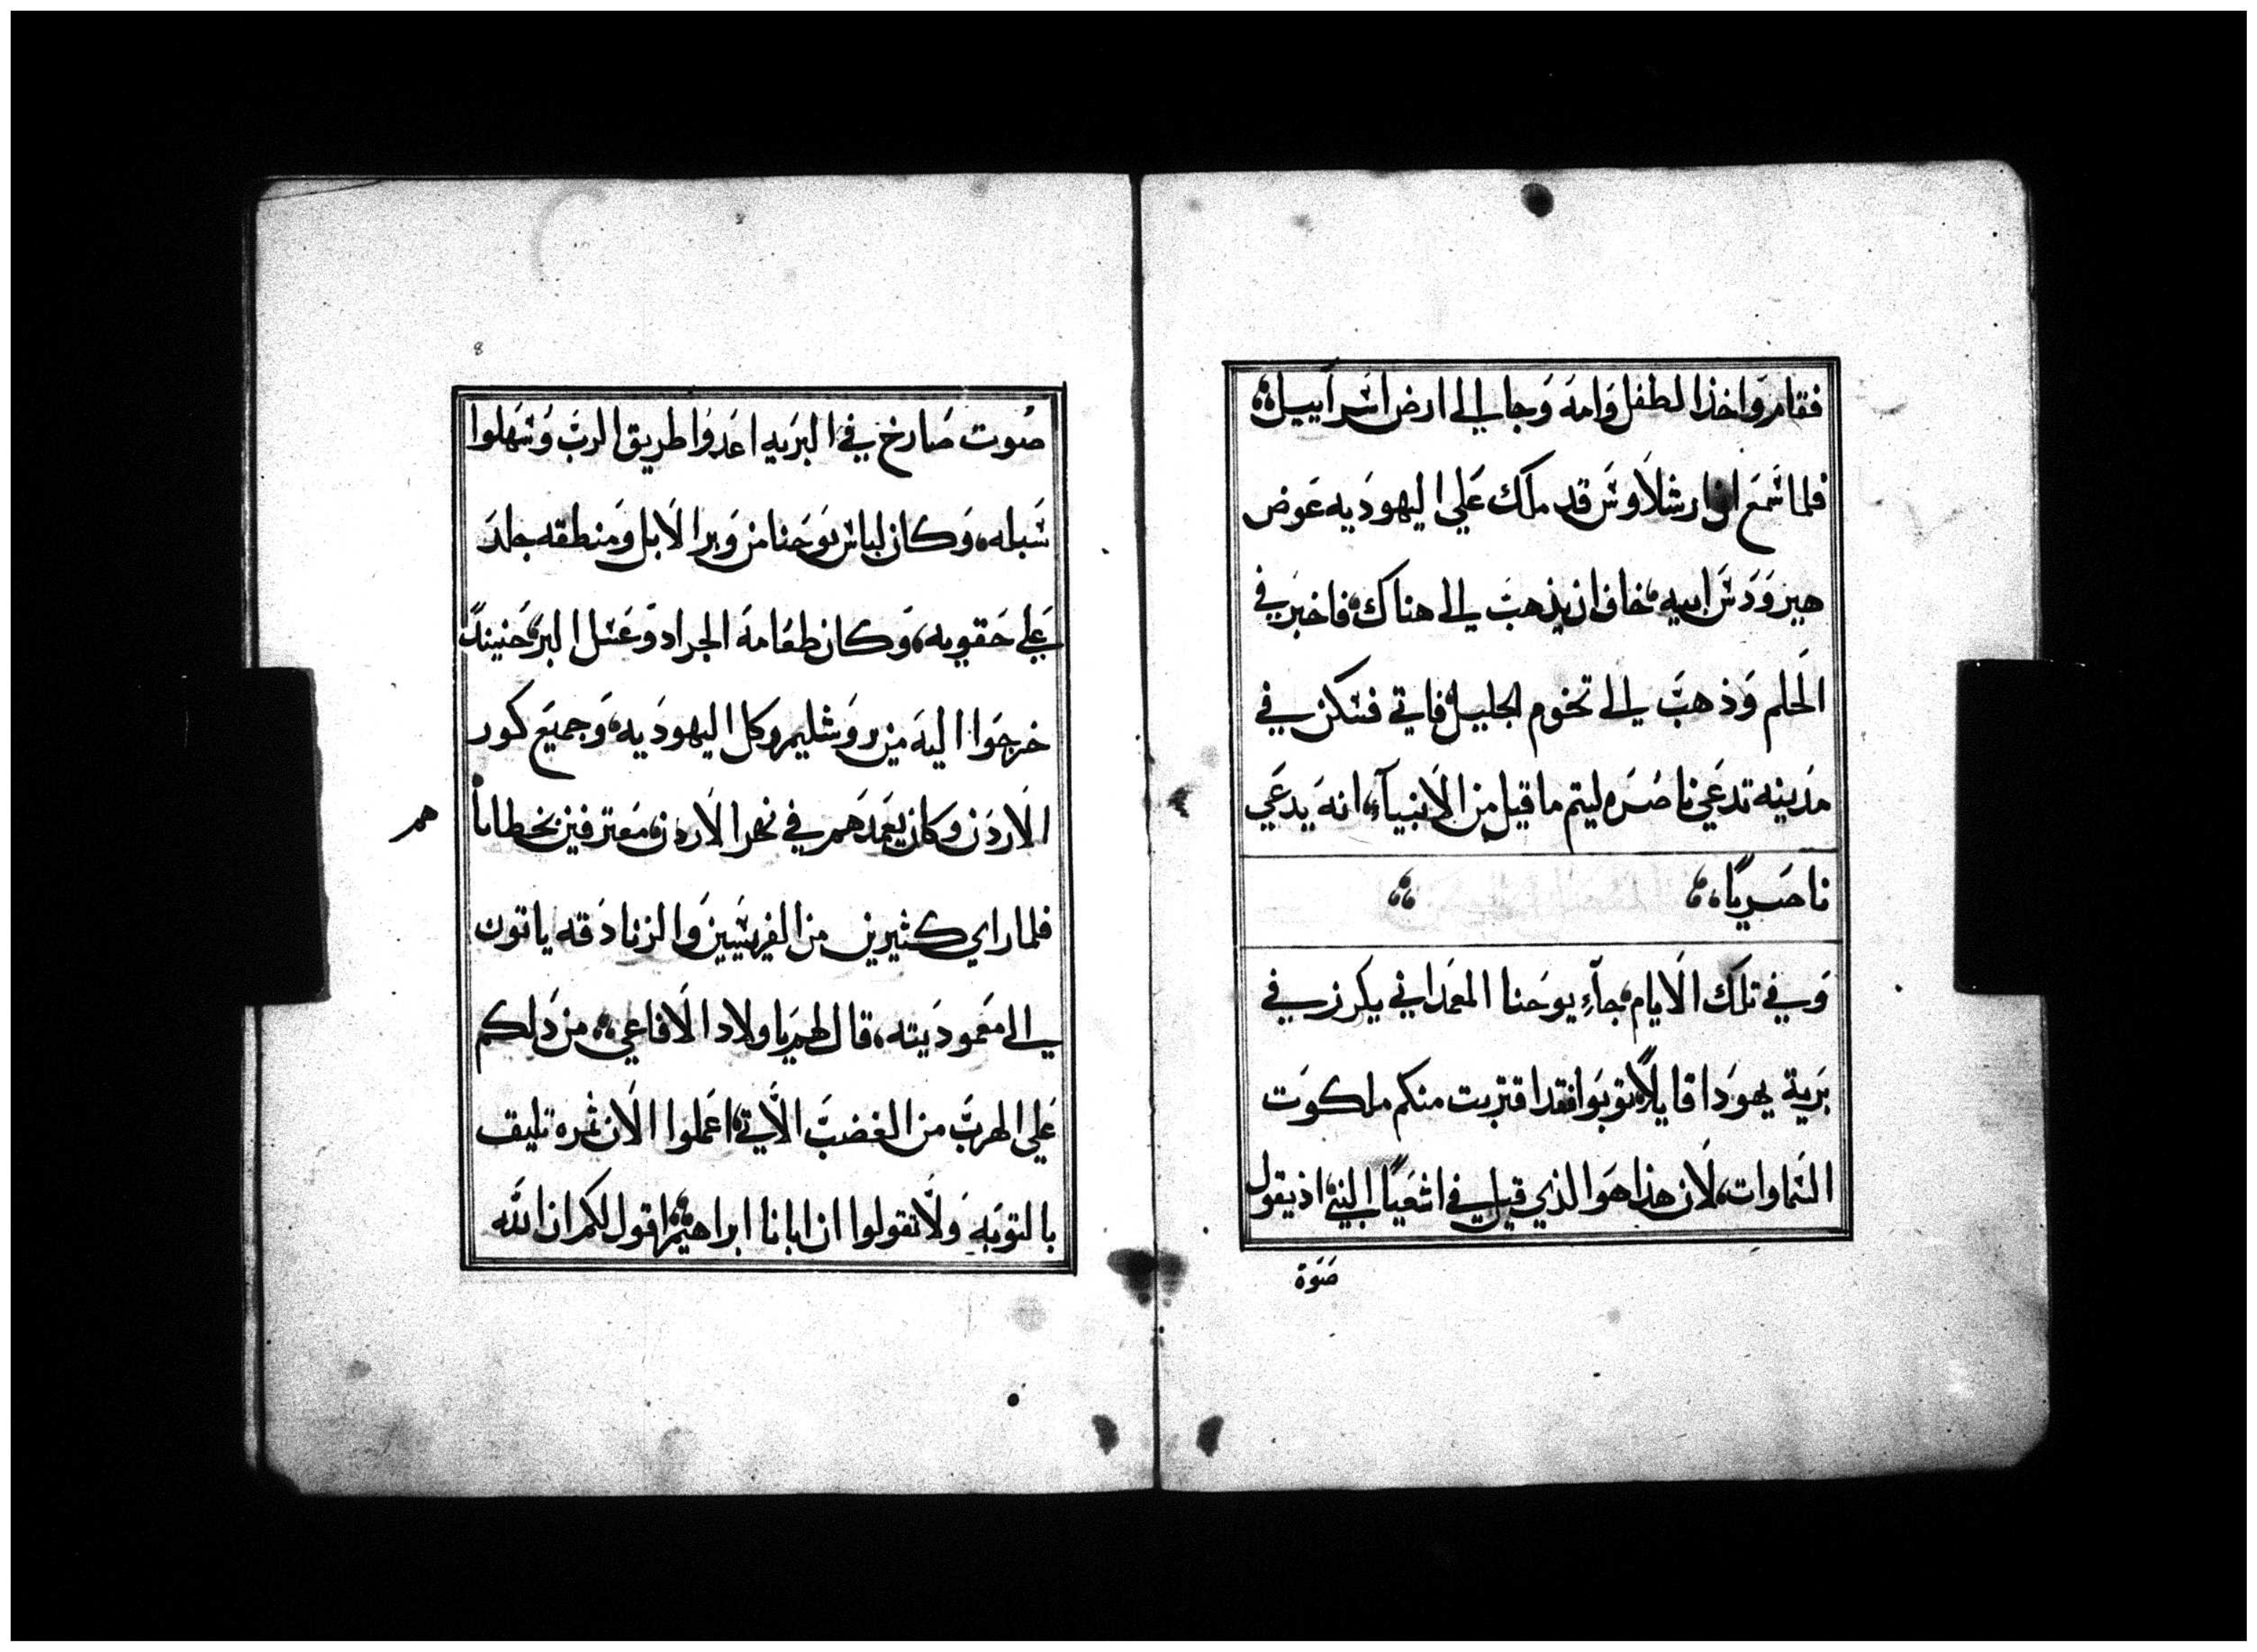 فقام واخذ الطفل وامه وجا الي ارض اسراييل
فلما سمع ان ارشلاوس قد ملك علي اليهوديه عوض
هيرودس ابيه خاف ان يذهب الي هناك فاخبر في
الحلم وذهب الي تخوم الجليل فاتي فسكن في
مدينه تدعي ناصره ليتم ما قيل من الانبيآء انه يدعي
ناصريًا
وفي تلك الايام جآء يوحنا المعمداني يكرز في
برية يهودا قايلًا توبوا فقد اقتربت منكم ملكوت
السماوات لان هذا هو الذي قيل في اشعيا النبي اذ يقول
صوة
8
صوت صارخ في البريه اعدوا طريق الرب وسهلوا
سبله وكان لباس يوحنا من وبر الابل ومنطقه جلد
علي حقويه وكان طعامه الجراد وعسل البر حنيندً
خرجوا اليه من يروشليم وكل اليهوديه وجميع كور
الاردن وكان يعمدهم في نهر الاردن معترفين بخطايا
هم
فلما راي كثيرين من الفريسيين والزنادقه ياتون
الي معموديته قال لهم يا اولاد الافاعي من دلكم
علي الهرب من الغضب الاتي اعملوا الان ثمره تليق
بالتوبه ولا تقولوا ان ابانا ابراهيم اقول لكم ان الله